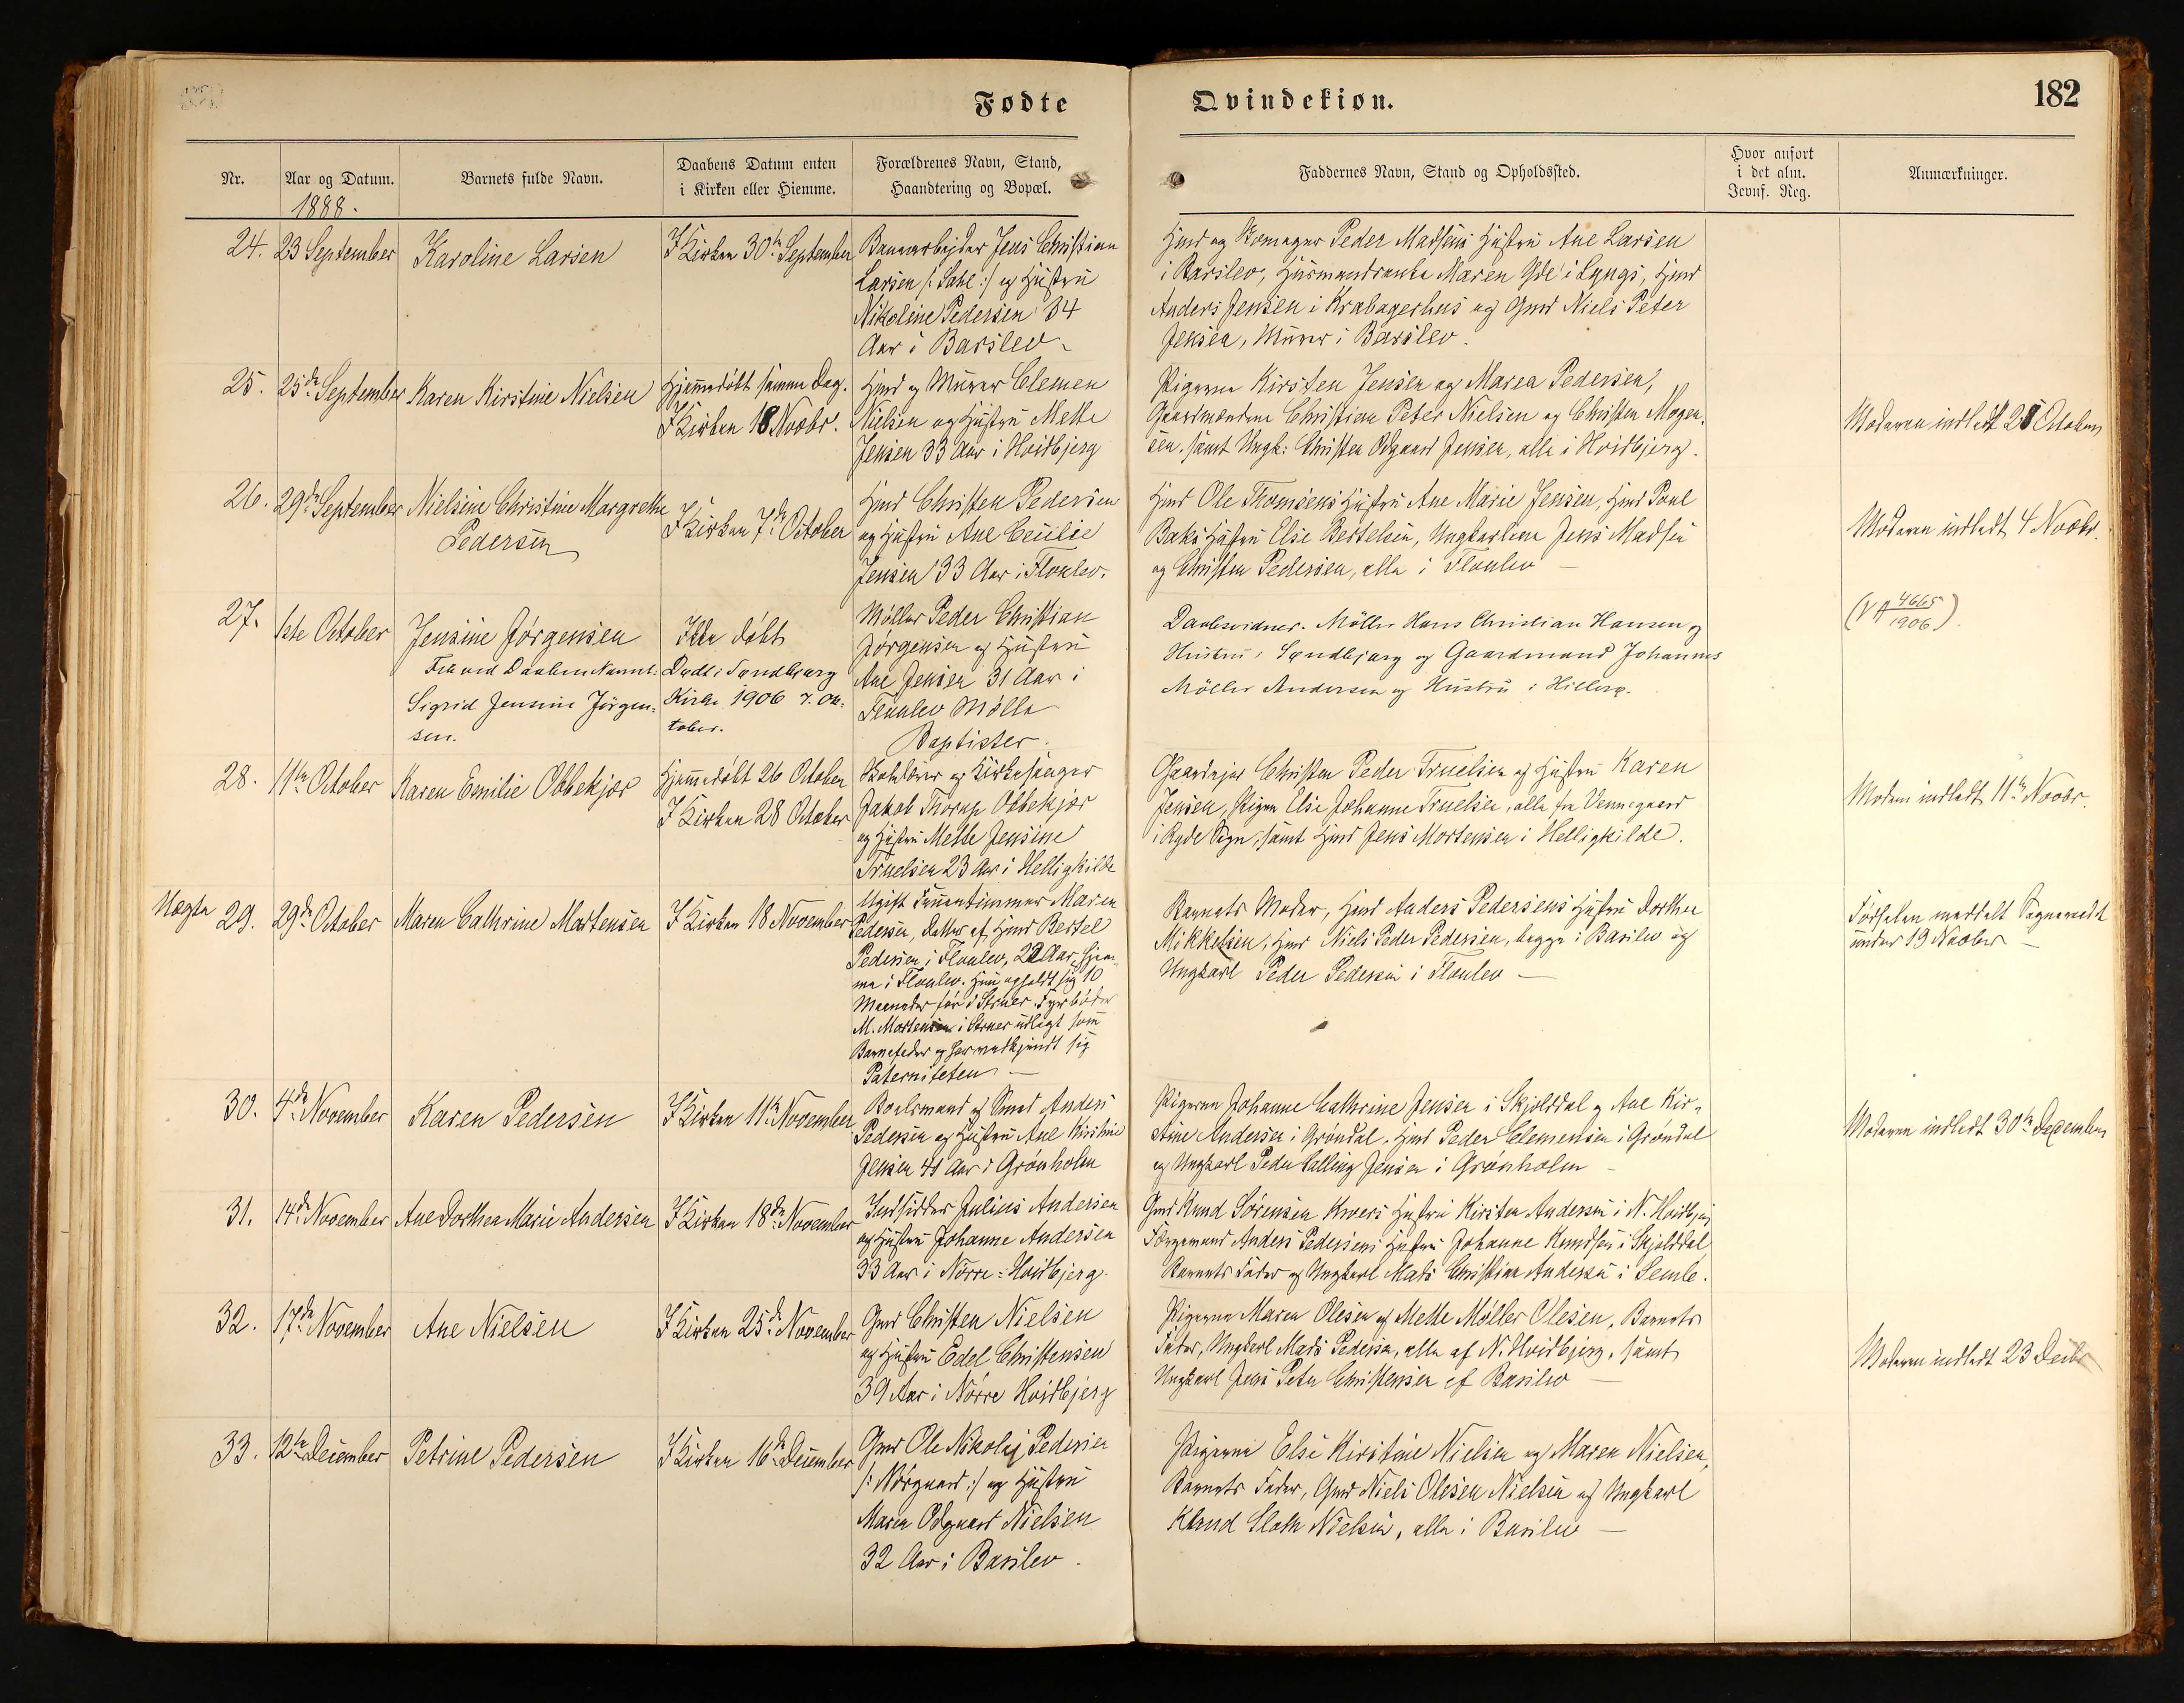 Fødte
Qvindekiøn.
182
Nr.
Aar og Datum.
1888.
Barnets fulde Navn.
Daabens Datum enten
i Kirken eller Hiemme.
Forældrenes Navn, Stand,
Haandtering og Bopæl.
Faddernes Navn, Stand og Opholdssted.
Hvor anført
i det alm.
Jevnf. Reg.
Anmærkninger.
24.
23 September
Karoline Larsen
I Kirken 30te September
Banearbejder Jens Christian
Larsen /: Sahl :/ og Hustru
Nikoline Pedersen 34
Aar i Barslev
Hmd og Skomager Peder Madsens Hustru Ane Larsen
i Barslev, Husmandsenke Maren Yde i Lyngs, Hmd
Anders Jensen i Krabagerhus og Gmd Niels Peter
Jensen, Murer i Barslev.
25.
25de September
Karen Kirstine Nielsen
Hjemmedøbt samme Dag.
I Kirken 18 Novbr.
Hmd og Murer Clemen
Nielsen og Hustru Mette
Jensen 33 Aar i Hvidbjerg
Pigerne Kirsten Jensen og Maren Pedersen,
Gaardmændene Christian Peter Nielsen og Christen Mogen-
sen, samt Ungk: Christen Odgaard Jensen, alle i Hvidbjerg.
Moderen indledt 28 October
26.
29de September
Nielsine Christine Margrethe
Pedersen
I Kirken 7de October
Hmd Christen Pedersen
og Hustru Ane Cecilie
Jensen 33 Aar i Floulev.
Hmd Ole Thomsens Hustru Ane Marie Jensen, Hmd Poul
Baks Hustru Else Bertelsen, Ungkarlene Jens Madsen
og Christen Pedersen, alle i Floulev
Moderen indledt 4 Novbr.
27.
1ste October
Jensine Jørgensen
Fik ved Daaben Navnet:
Sigrid Jensine Jørgen-
sen.
Ikke døbt
Døbt i Søndbjerg
Kirke 1906 7. Ok-
tober.
Møller Peder Christian
Jørgensen og Hustru
Ane Jensen 31 Aar i
Floulev Mølle
Baptister.
Daabsvidner. Møller Hans Christian Hansen og
Hustru, Søndbjerg og Gaardmand Johannes
Møller Andersen og Hustru i
(VA 4665
1906)
28.
11te October
Karen Emilie Obbekjær
Hjemmedøbt 26 October
I Kirken 28 October
Skolelærer og Kirkesanger
Jakob Thorup Obbekjær
og Hustru Mette Jensine
Truelsen 23 Aar i Helligkilde
Gaardejer Christen Peder Truelsen og Hustru Karen
Jensen, Pigen Else Johanne Truelsen, alle fra Vennegaard
i Ryde Sogn, samt Hmd Jens Mortensen i Helligkilde.
Modern indledt 11te Novbr.
Uægte 29.
29de October
Maren Cathrine Martensen
I Kirken 18 November
Ugift Fruentimmer Maren
Pedersen, Datter af Hmd Bertel
Pedersen i Floulev, 22 Aar, hjem-
me i Floulev. Hun opholdt sig 10
Maaneder før i Struer. Fyrbøder
M. Mortensen i Struer udlagt som
Barnefader og har vedkjendt sig
Paterniteten
Barnets Moder, Hmd Anders Pedersens Hustru Dorthea
Mikkelsen, Hmd Niels Peder Pedersen, begge i Barslev og
Ungkarl Peder Pedersen i Floulev
Fødselen meddelt Sogneraadet
under 19 Novbr
30.
4de November
Karen Pedersen
I Kirken 11te November
Boelsmand og Smed Anders
Pedersen og Hustru Ane Kirstine
Jensen 41 Aar i Grønholm
Pigerne Johanne Cathrine Jensen i Skjolddal og Ane Kir-
stine Andersen i Grøndal. Hmd Peder Clemensen i Grøndal
og Ungkarl Peder Salling Jensen i Grønholm
Moderen indledt 30te December
31.
14de November
Ane Dorthea Marie Andersen
I Kirken 18de November
Indsidder Julius Andersen
og Hustru Johanne Andersen
33 Aar i Nørre-Hvidbjerg.
Gmd Knud Sørensen Hustru Kirsten Andersen i N. Hvidbjerg
Færgemand Anders Pedersens Hustru Johanne Knudsen i Skjolddal
Barnets Fader og Ungkarl Mads Christian Andersen i Semb.
32.
17de November
Ane Nielsen
I Kirken 25de November
Gmd Christen Nielsen
og Hustru Edel Christensen
39 Aar i Nørre Hvidbjerg
Pigerne Maren Olesen og Mette Møller Olesen, Barnets
Fader, Ungkarl Mads Pedersen, alle af N. Hvidbjerg, samt
Ungkarl Jens Peter Christensen af Barslev
Moderen indledt 23 Decbr
33.
12te December
Petrine Pedersen
I Kirken 16de December
Gmd Ole Nikolaj Pedersen
/: Nørgaard :/ og Hustru
Maren Odgaard Nielsen
32 Aar i Barslev.
Pigerne Else Kirstine Nielsen og Maren Nielsen,
Barnets Fader, Gmd Niels Olesen Nielsen og Ungkarl
Knud Sloth Nielsen, alle i Barslev